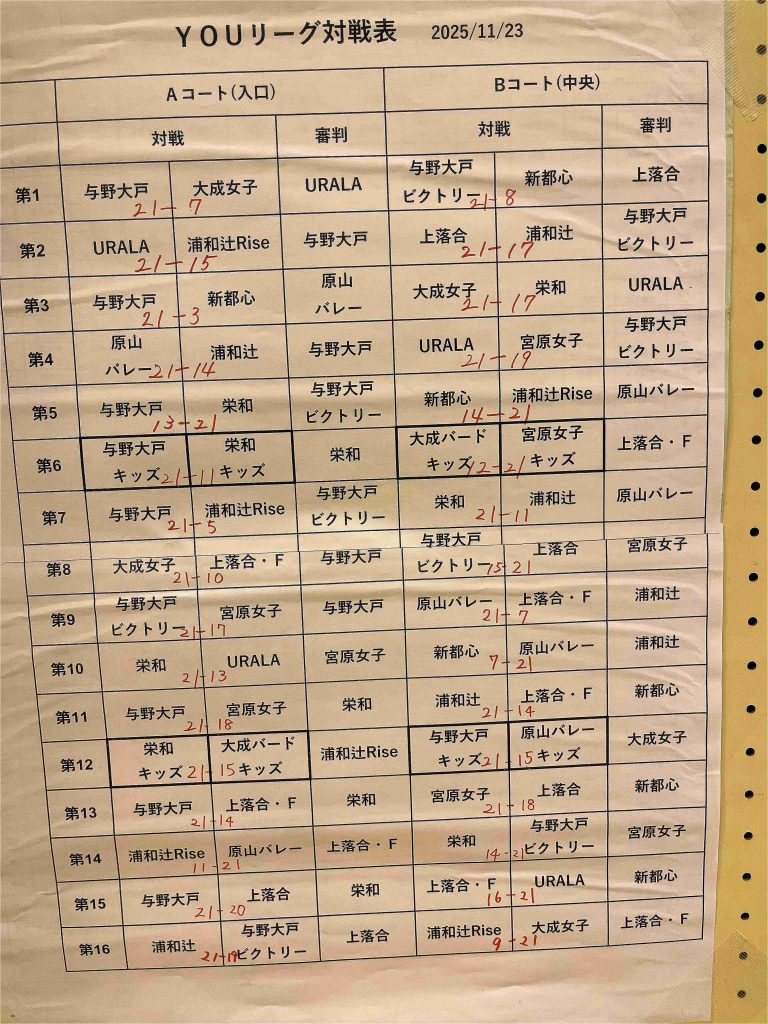 YOUリーグ対戦表 2025/11/23
Aコート(入口) Bコート(中央)
対戦 審判 対戦 審判
第1 与野大戸 21-7 大成女子 URALA 与野大戸ビクトリー 21-8 新都心 上落合
第2 URALA 21-15 浦和辻Rise 与野大戸 上落合 21-17 浦和辻 与野大戸ビクトリー
第3 与野大戸 21-3 新都心 原山バレー 大成女子 21-17 栄和 URALA
第4 原山バレー 21-14 浦和辻 与野大戸 URALA 21-19 宮原女子 与野大戸ビクトリー
第5 与野大戸 13-21 栄和 与野大戸ビクトリー 新都心 14-21 浦和辻Rise 原山バレー
第6 与野大戸キッズ 21-11 栄和キッズ 栄和 大成バードキッズ 12-21 宮原女子キッズ 上落合・F
第7 与野大戸 21-5 浦和辻Rise 与野大戸ビクトリー 栄和 21-11 浦和辻 原山バレー
第8 大成女子 21-10 上落合・F 与野大戸 与野大戸ビクトリー 15-21 上落合 宮原女子
第9 与野大戸ビクトリー 21-17 宮原女子 与野大戸 原山バレー 21-7 上落合・F 浦和辻
第10 栄和 21-13 URALA 宮原女子 新都心 7-21 原山バレー 浦和辻
第11 与野大戸 21-18 宮原女子 栄和 浦和辻 21-14 上落合・F 新都心
第12 栄和キッズ 21-15 大成バードキッズ 浦和辻Rise 与野大戸キッズ 21-15 原山バレーキッズ 大成女子
第13 与野大戸 21-14 上落合・F 栄和 宮原女子 21-18 上落合 新都心
第14 浦和辻Rise 11-21 原山バレー 上落合・F 栄和 14-21 与野大戸ビクトリー 宮原女子
第15 与野大戸 21-20 上落合 栄和 上落合・F 16-21 URALA 新都心
第16 浦和辻 21-19 与野大戸ビクトリー 上落合 浦和辻Rise 9-21 大成女子 上落合・F